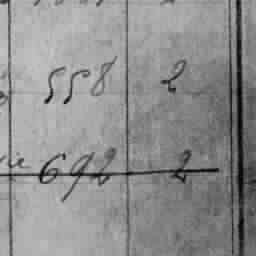 558 2
692 2